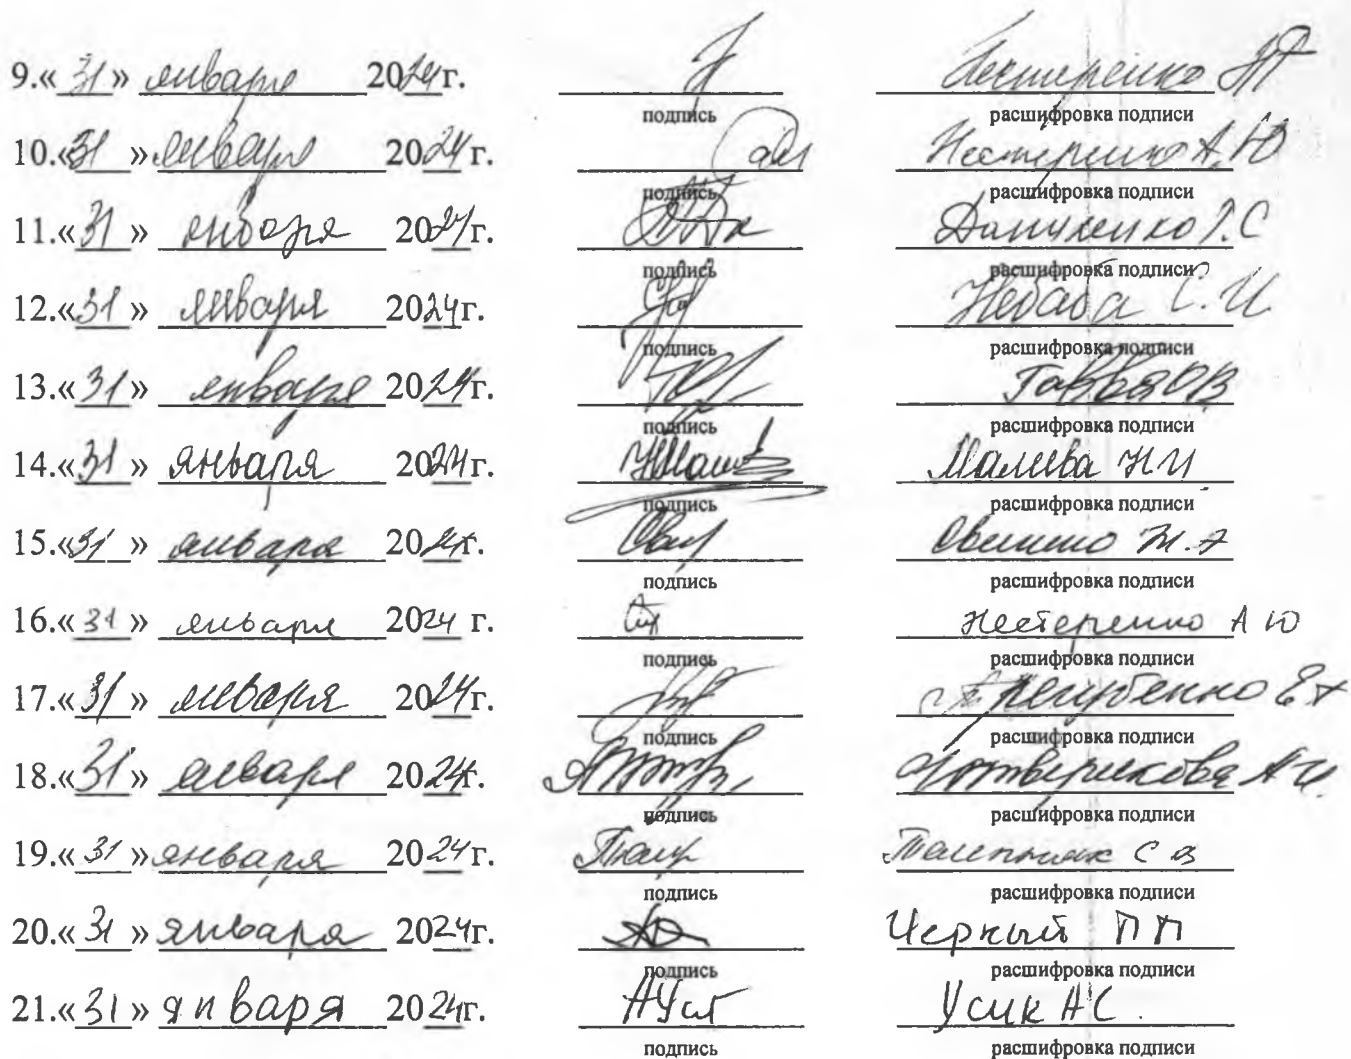 9.«31» января 2024г. Нестеренко
подпись расшифровка подписи
10.«31» января 2024г. Нестеренко А.Ю
подпись расшифровка подписи
11.«31» января 2024г. С
подпись расшифровка подписи
12.«31» января 2024г. Небаба С.И.
подпись расшифровка подписи
13.«31» января 2024г.
подпись расшифровка подписи
14.«31» января 2024г. Малиева НИ
подпись расшифровка подписи
15.«31» января 2024г.
подпись расшифровка подписи
16.«31» января 2024 г. Нестеренко А Ю
подпись расшифровка подписи
17.«31» января 2024г.
подпись расшифровка подписи
18.«31» января 2024г.
подпись расшифровка подписи
19.«31» января 2024г.
подпись расшифровка подписи
20.«31» января 2024г. Черный ПП
подпись расшифровка подписи
21.«31» января 2024г. АУси Усик АС.
подпись расшифровка подписи